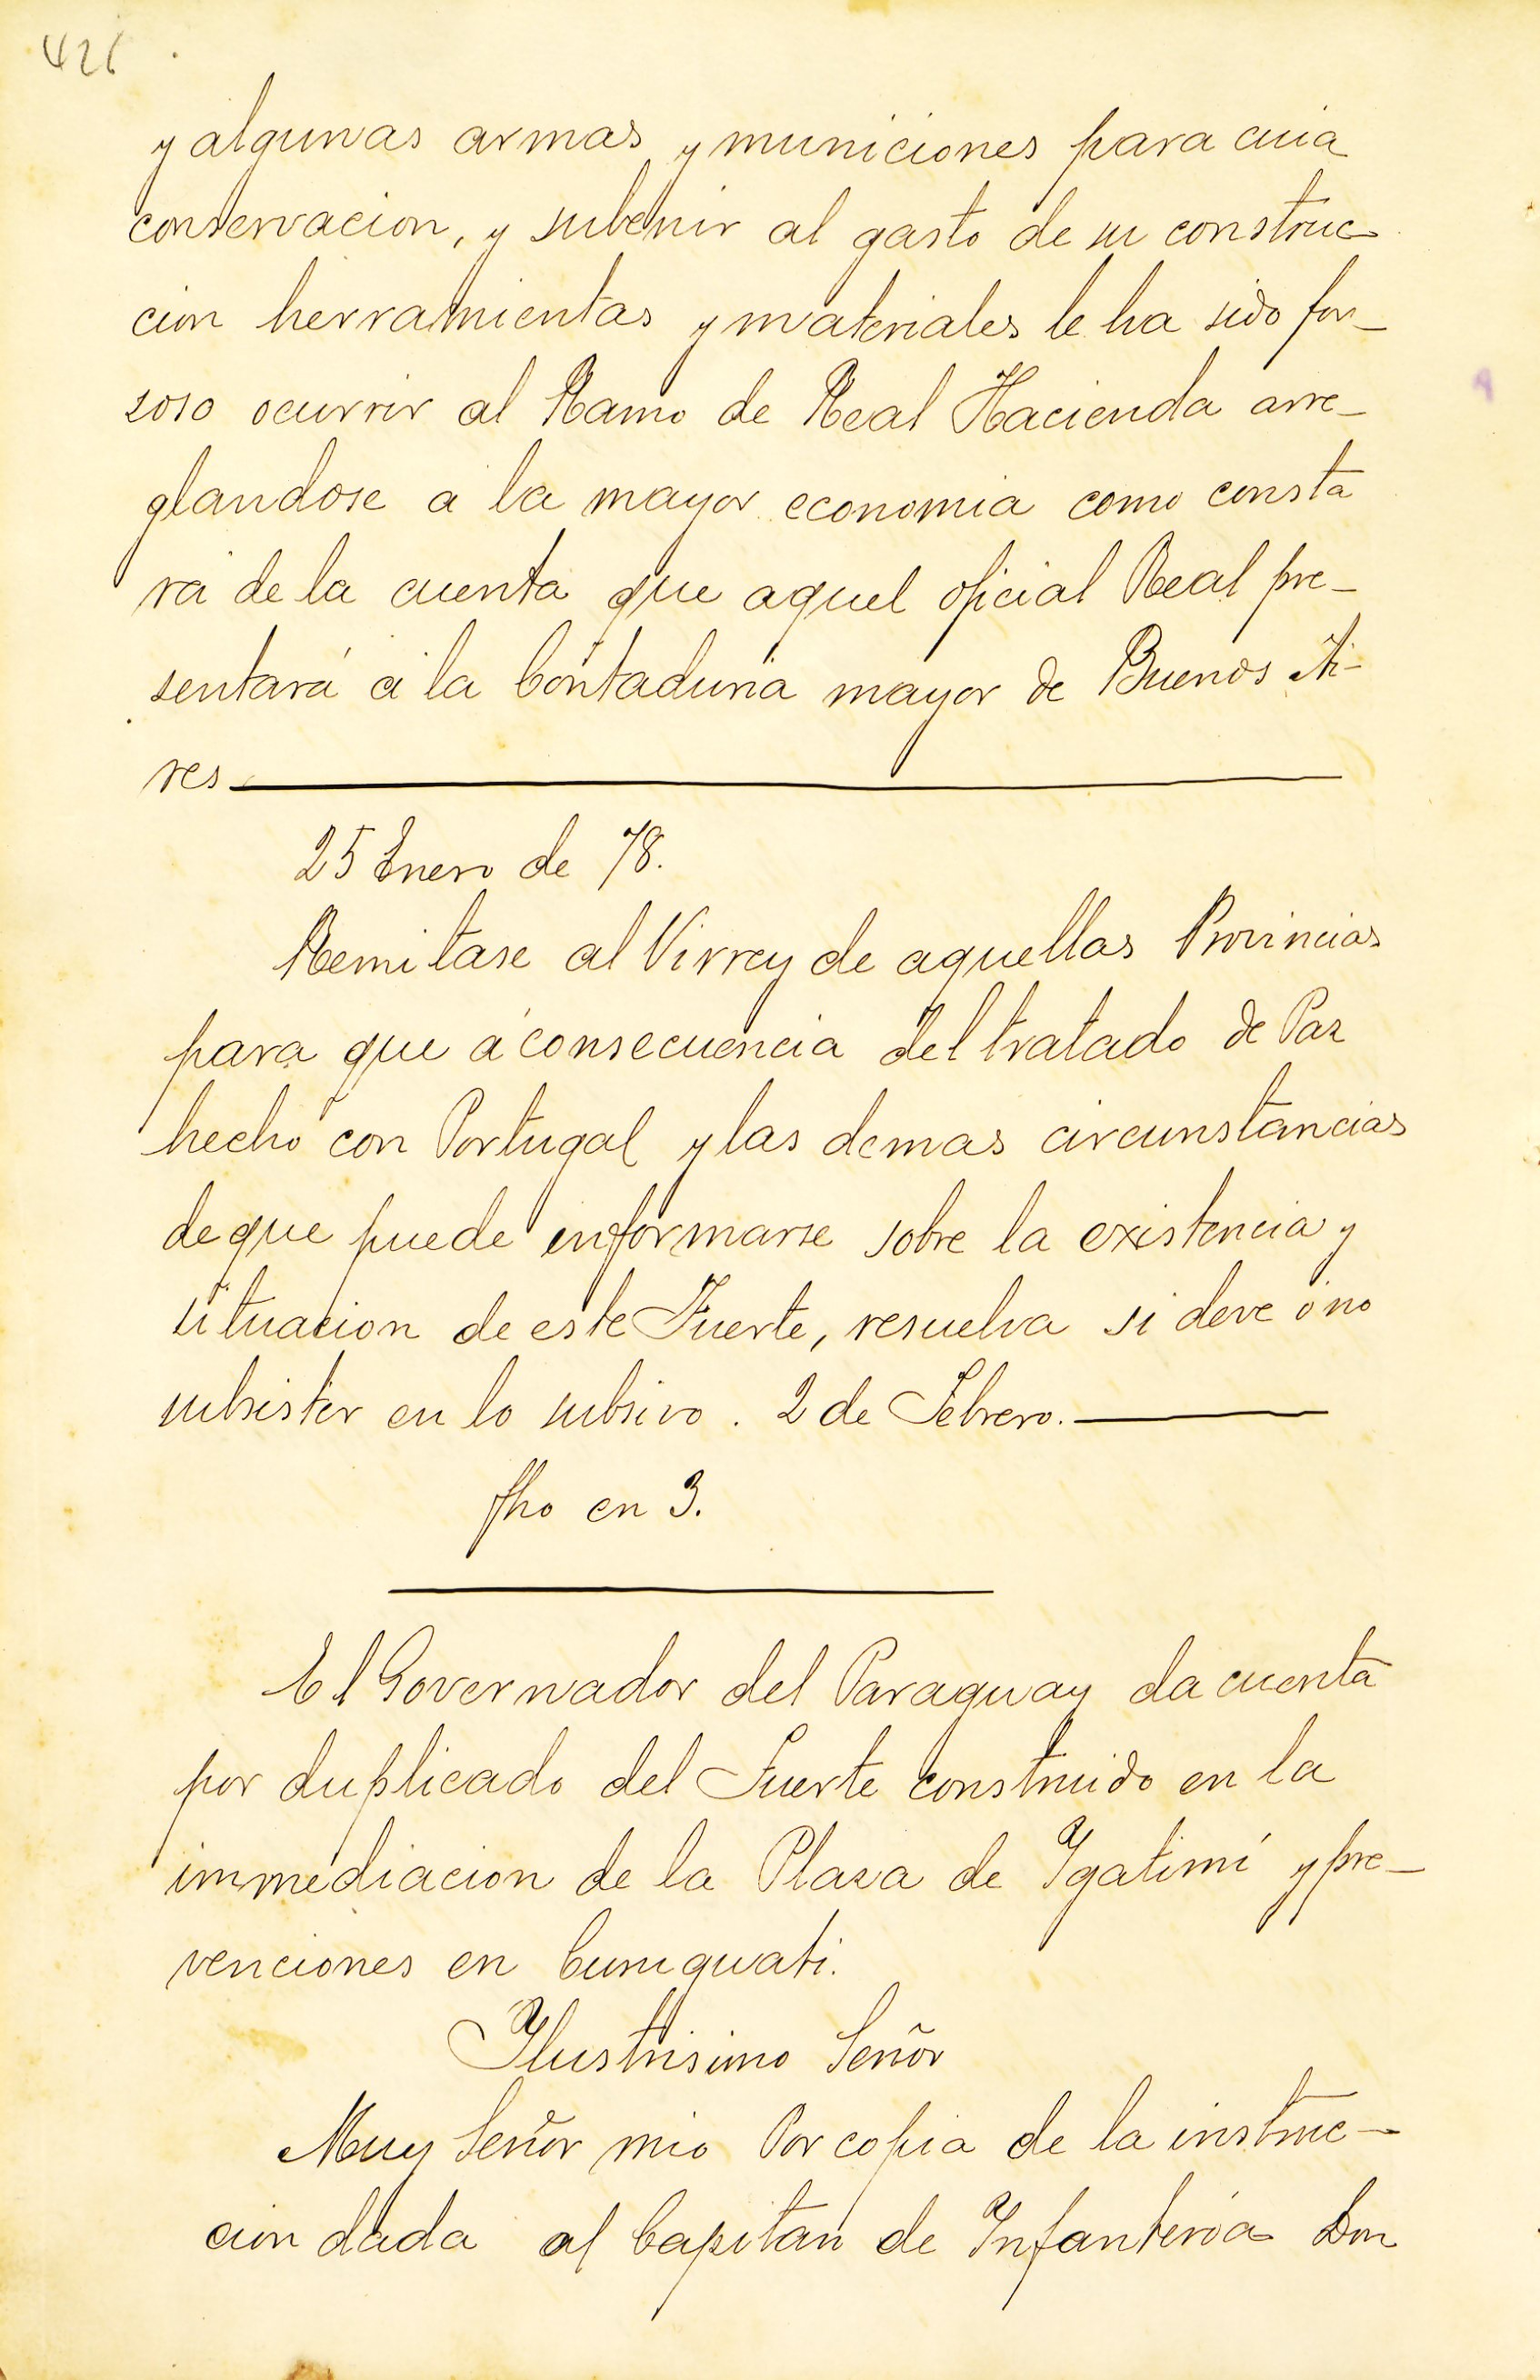 426
y algunas armas y municiones para cuia
conservacion, y subenir al gasto de su construc-
cion herramientas y materiales le ha sido for-
soso ocurrir al Ramo de Real Hacienda arre-
glandose a la mayor economia como consta
rá de la cuenta que aquel oficial Real pre-
sentará á la Contaduria mayor de Buenos Ai-
res
25 Enero de 78.
Remitase al Virrey de aquellas Provincias
para que á consecuencia del tratado de Paz
hecho con Portugal y las demas circunstancias
de que puede informarse sobre la existencia y
situacion de este Fuerte, resuelva si deve ó no
subsistir en lo subsivo. 2 de Febrero.
fho en 3.
El Governador del Paraguay da cuenta
por duplicado del Fuerte construido en la
immediacion de la Plaza de Ygatimí y pre-
venciones en Curuguati.
Ylustrisimo Señor
Muy Señor mio Por copia de la instruc-
cion dada al Capitan de Ynfanteria Don